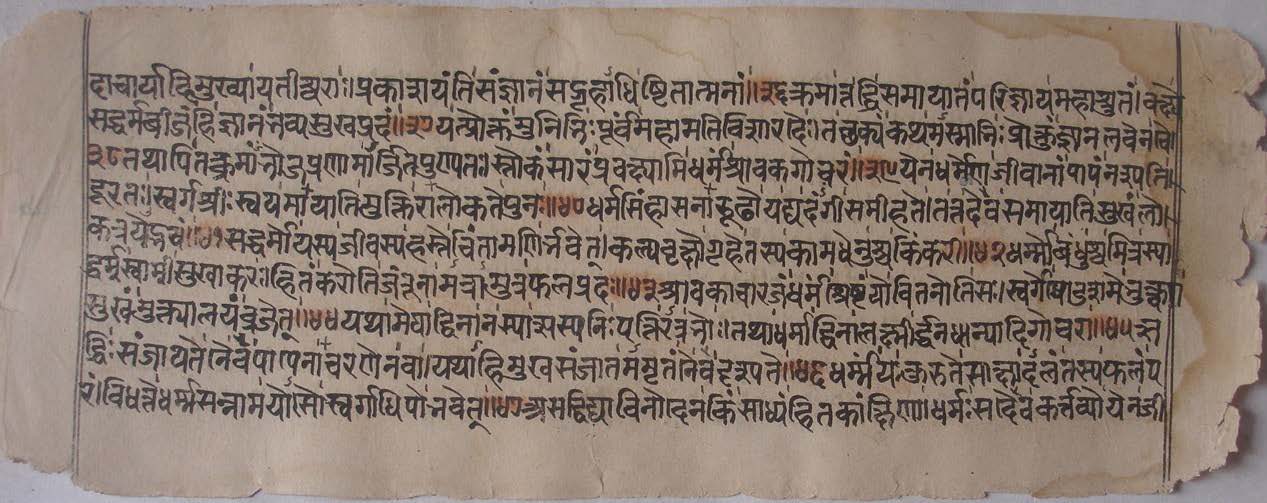 दाचार्या हि मुख्या यतीश्वराः। प्रकाशयंति संज्ञानं सद्गृहाधिष्टितात्मनां॥३६ क्रमान्नद्धि समायातं परिज्ञाय महाश्रुतं। वक्ष्ये
सद्धर्मबीजं हि ज्ञानं भव्यसुखप्रदं॥३७ यत्प्रोक्तं मुनिभिः पूर्वं महामतिविशारदैः। तच्छक्यं कथमस्माभिः प्रोक्तुं ज्ञानलवेन वा।
३८ तथापि तत्क्रमांभोजप्रणामार्जितपुण्यतः। स्तोकं सारं प्रवक्ष्यामि धर्मं श्रावकगोचरं॥३९ येन धर्मेण जीवानां पापं नश्यति
दूरतः। स्वर्गश्रीः स्वयमायाति मुक्तिरालोकते पुनः॥४० धर्मसिंहासनारूढो यद्यदंगी समीहते। तत्तदेव समायाति सुखं लो
कत्रयोद्भवं॥४१ सद्धर्मो यस्य जीवस्य हस्ते चिंतामणिर्भवेत्। कल्पवृक्षो गृहे तस्य कामधेनुश्च किंकरी॥४२ धर्मो बंधुश्च मित्रं स्या
द्धर्मः स्वामी सुखाकरः। हितं करोति जंतूनामत्रामुत्र फलप्रदः॥४३ श्रावकाचारजं धर्मं श्रेष्टं यो वितनोति सः। स्वर्गे षोडशमे भुक्त्वा
सुखं मुक्त्यालयं व्रजेत्॥४४ यथा मेघाद्विना न स्यात् सस्यनिःपत्तिरत्र भोः। तथा धर्माद्विना लक्ष्मीर्द्धनधान्यादिगोचरा॥४५
द्धिः संजायते नैव पापेनाचरणेन वा। यथाहिमुखसंजातममृतं नैव दृश्यते॥४६ धर्मं यः कुरुते साक्षादलं तस्य फलं प
रं। विधत्ते धर्मसन्नाम यो सो स्वर्गाधिपो भवेत्॥४७ असद्विद्याविनोदेन किं साध्यं हितकांक्षिणा। धर्मः सदैव कर्त्तव्यो येन जी